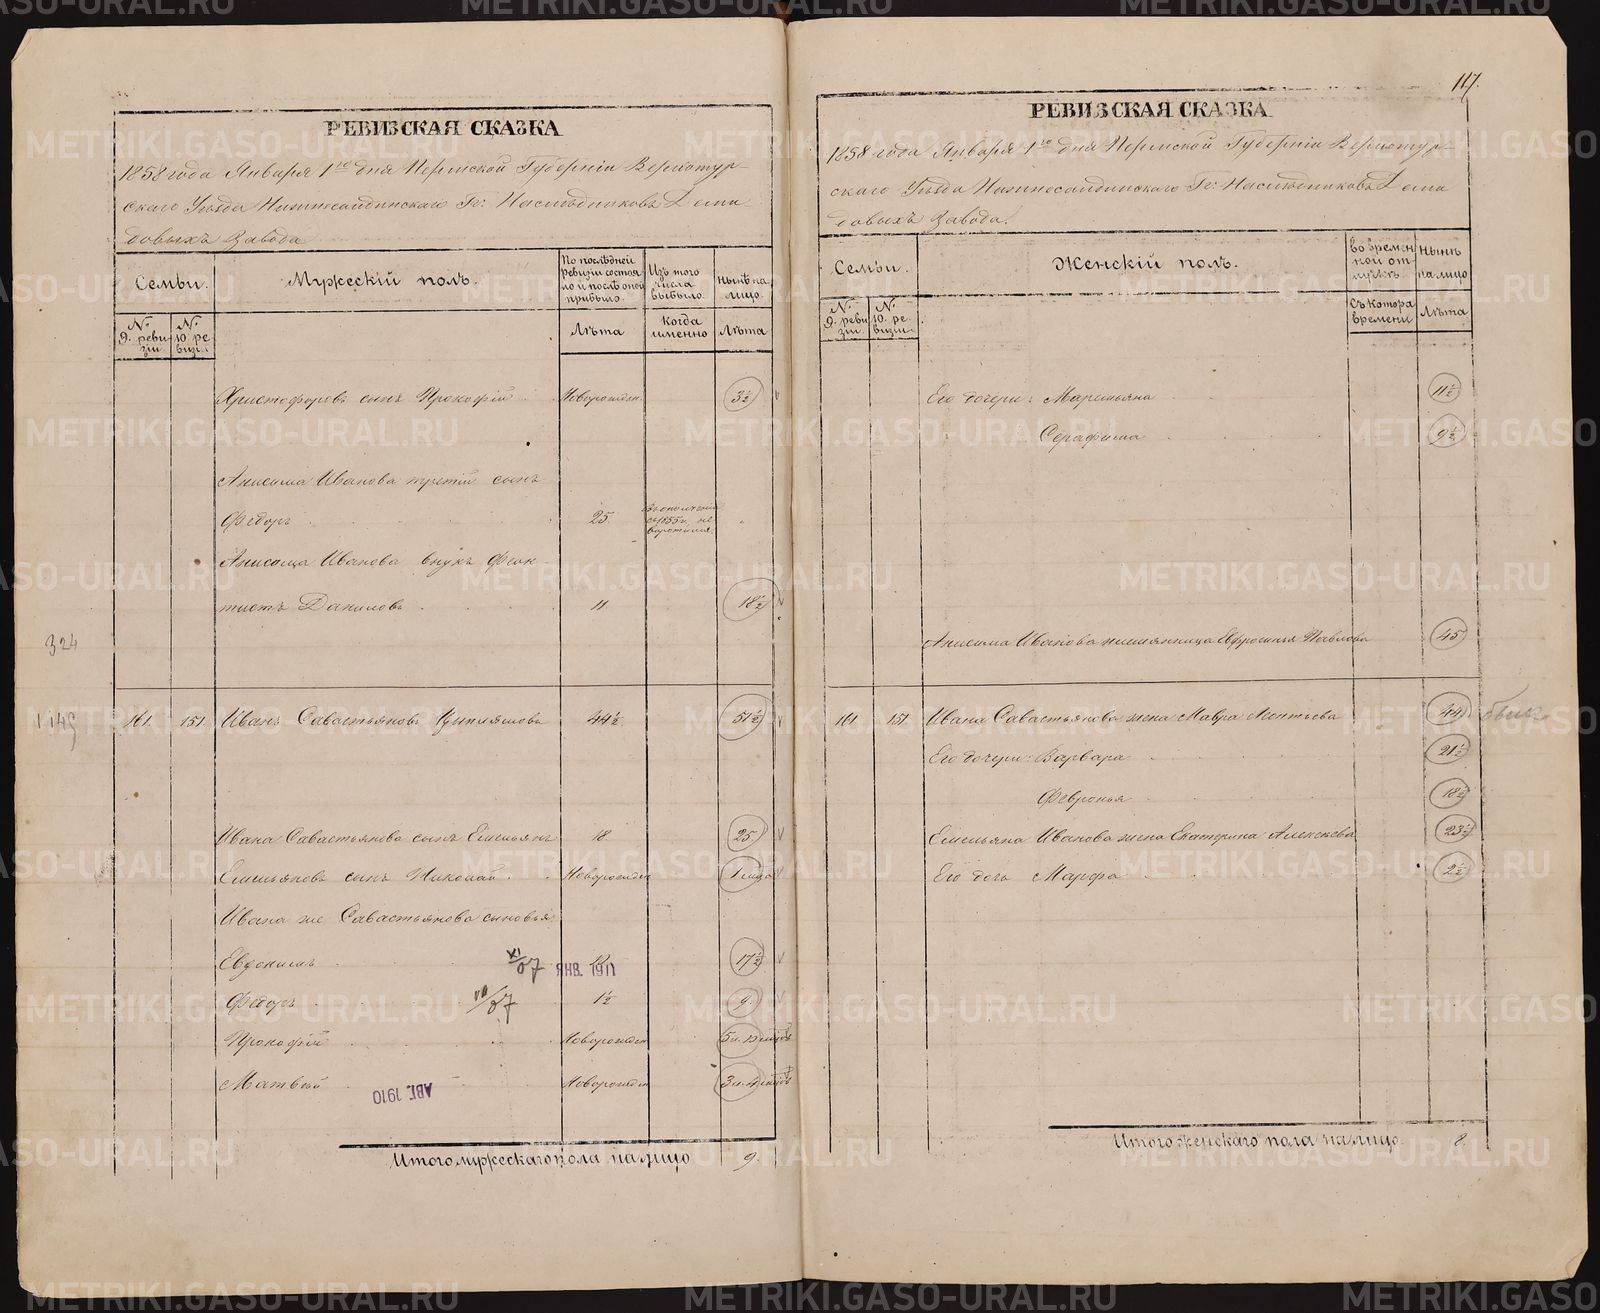 РЕВИЗСКАЯ СКАЗКА
1858 года Января 1го дня Пермской Губерніи Верхотур-
скаго Уѣзда Нижнесалдинскаго Гг: Наслѣдниковъ Деми-
довыхъ Завода
Семьи.
Мужескій полъ.
По послѣдней ревизіи состоя-
ло и послѣ оной прибыло
Изъ того числа выбыло.
Нынѣ на лицо.
№ 9. реви-зіи.
№ 10 ре-визіи.
Лѣта
Когда именно
Лѣта
Христофоровъ сынъ Прокофій Новорожден. 3½
Анисима Иванова третій сынъ
Ѳедоръ 25 въ ополченіи съ 1855 г. не воротился
Анисима Иванова внукъ Феок-
тистъ Даниловъ 11 18½
324
1149
161. 151 Иванъ Савастьяновъ Цыпляшовъ 44½ 51½
Ивана Савастьянова сынъ Емельянъ 18 25
Емельяновъ сынъ Николай Новорожден 1 мѣсяца
Ивана же Савастьянова сыновья
Евдокимъ XI/07 ЯНВ. 1911 17½
Ѳедоръ VII/07 1½ 9
Прокофій Новорожден
Матвѣй Новорожден
АВГ. 1910
Итого мужескаго пола на лицо 9
117.
РЕВИЗСКАЯ СКАЗКА
1858 года Января 1го дня Пермской Губерніи Верхотур-
скаго Уѣзда Нижнесалдинскаго Гг: Наслѣдниковъ Деми
довыхъ Завода.
Семьи.
Женскій полъ.
во времен-ной от-лучкѣ
Нынѣ на лицо
№ 9. реви зіи
№ 10. ре-визіи
Съ котора времени
Лѣта
Его дочери: Маремьяна 11½
Серафима 9½
Анисима Иванова племянница Евфросинья Павлова 45
161 151 Ивана Савастьянова жена Мавра Леонтьева 44
Его дочери: Варвара 21½
Февронья 18½
Емельяна Иванова жена Екатерина Алексѣева 23½
Его дочь Марфа 2½
Итого женскаго пола на лицо 8.
METRIKI.GASO-URAL.RU